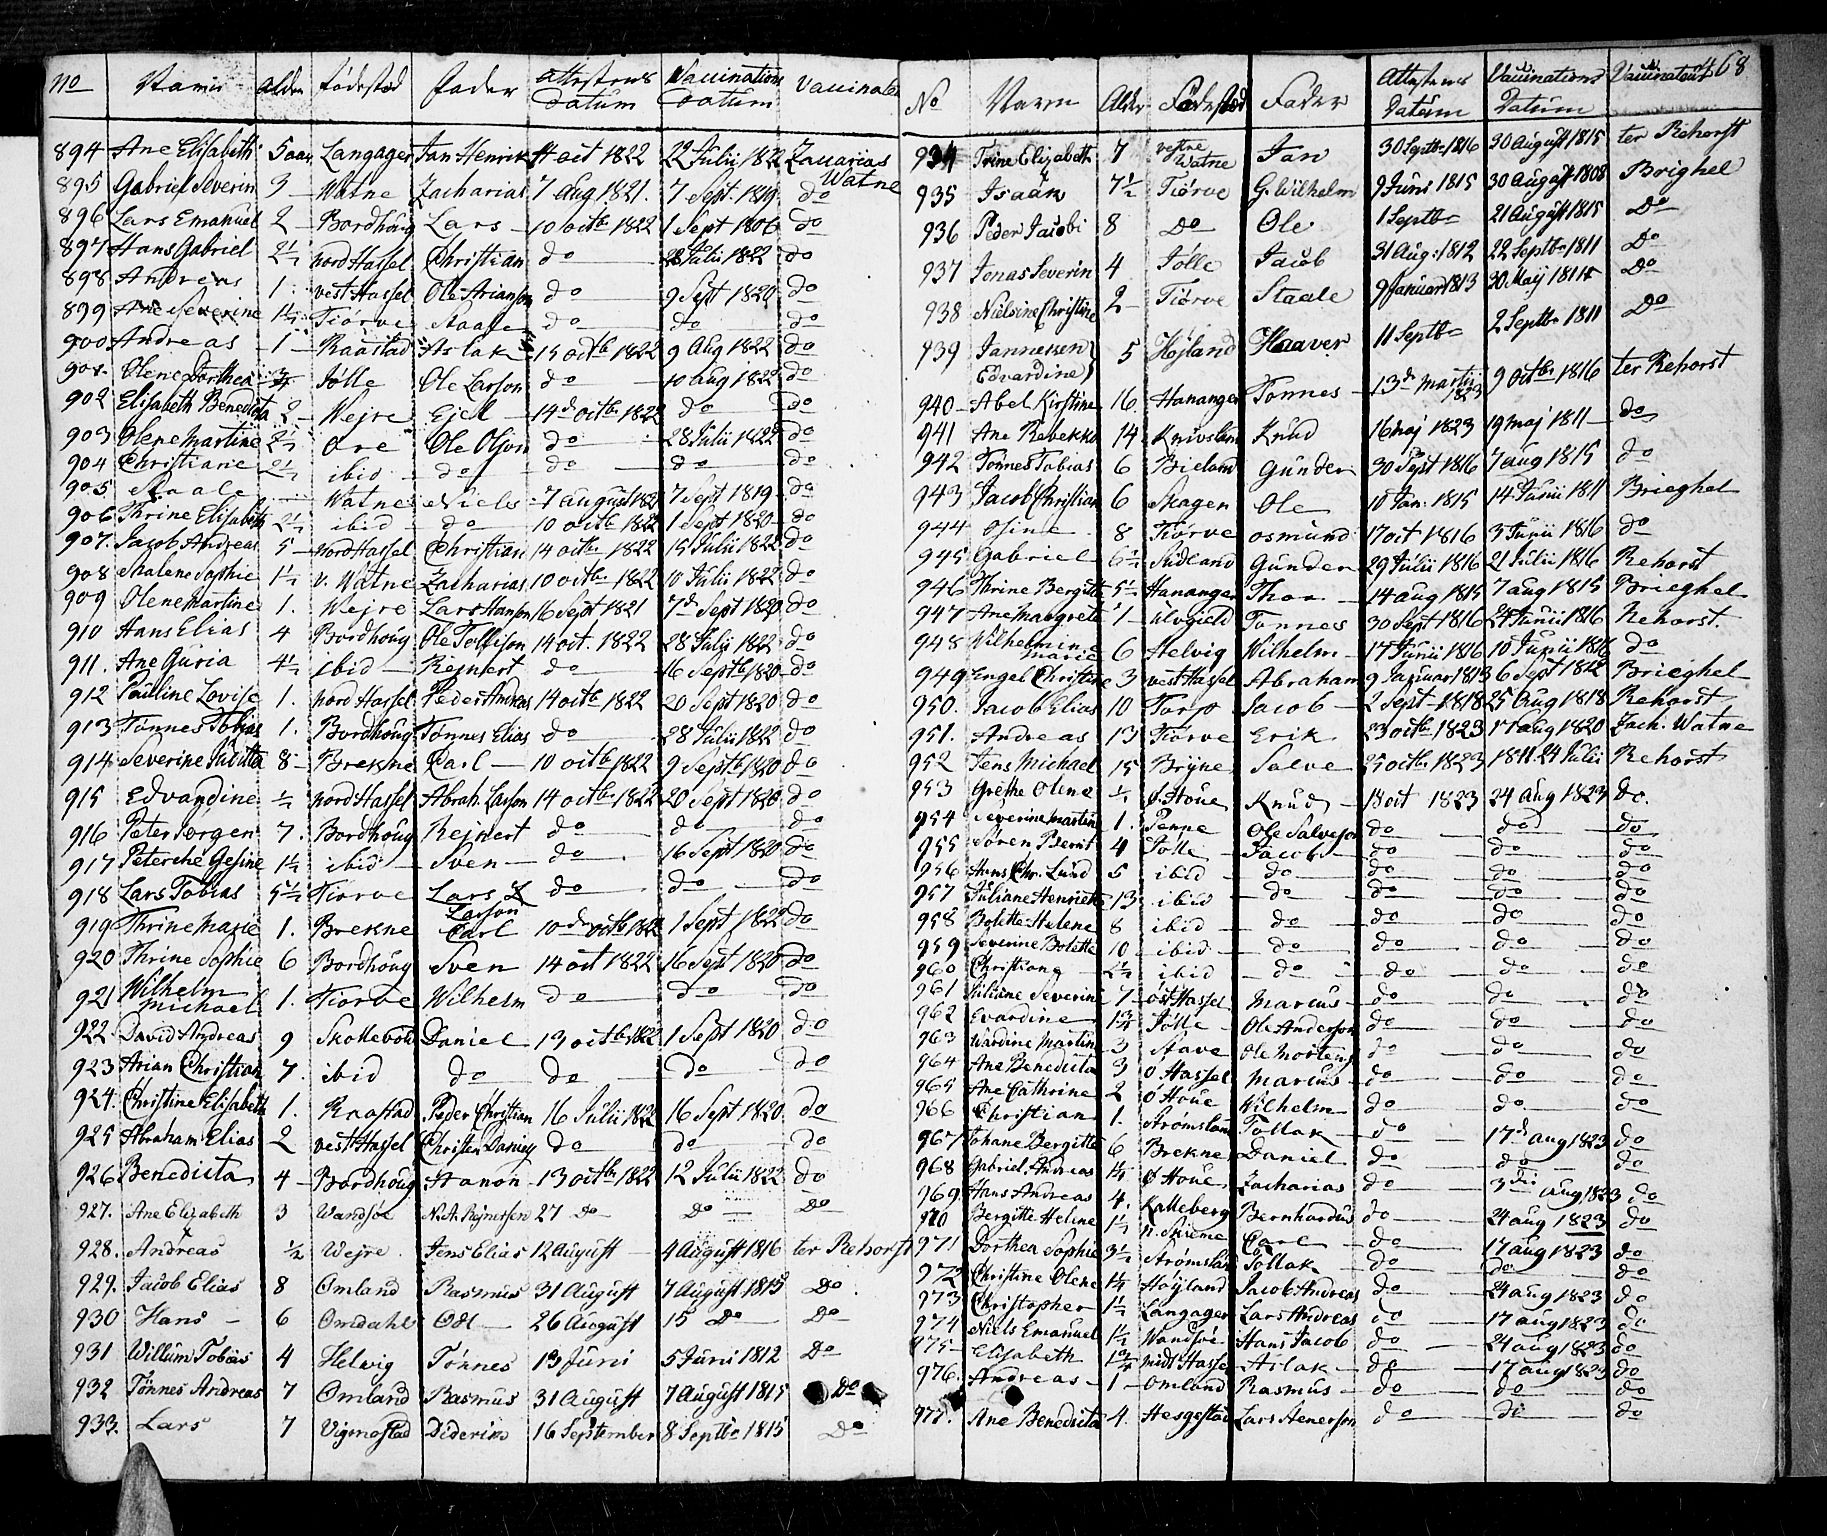 No Navne Alder Fødested Fader Attestens Datum Vaccinations Datum Vaccinateur
894 Ane Elisabeth 5 aar Langager Jan Henrik 4 oct 1822 22 Julii 1822 Zacarias Watne
895 Gabriel Severin 3 Watne Zacharias 7 Aug 1821. 7 Sept. 1819 do
896 Lars Emanuel 2 Bordhoug Lars 10 octb 1822 1 Sept 1806 do
897 Hans Gabriel 2½ nord Hassel Christian do 28 Julii 1822 do
898 Andreas 1. vest Hassel Ole Arianson do 9 Sept 1820 do
899 Ane Severine 1½ Tiórve Staale do do do
900 Andreas 1 Raastad Aslak 15 octb 1822 9 Aug 1822 do
901. Olene Dorthea ¾ Jølle Ole Larson do 10 aug 1822 do
902 Elisabeth Benedicta 2 Wejre Ejel 14d octb 1822 do do
903 Olene Martine 2½ Ore Ole Olson do 28 Julii 1822 do
904 Christiane 2½ ibid do do do do
905 Staale Watne Niels 7 august 182 7 Sept 1819 do
906 Thrine Elisabeth 2½ ibid do 10 octb 1822 1 Sept 1820 do
907. Jacob Andreas 5 nord Hassel Christian 14 octb 1822 15 Julii 1822 do
908 Malene Sophie 1½ v. Watne Zacharias 10 octb 1822 10 Julii 1822 do
909 Olene Martine 1. Wejre Lars Hanson 16 Sept 1821 7d Sept 1820 do
910 Hans Elias 4 Bordhoug Ole Tollison 14 oct. 1822 28 Julii 1822 do
911. Ane Guria 4½ ibid Rejnert do 16 Septb 1820 do
912 Pauline Lovise 1. nord Hassel Peder Andreas 14 octb 1822 20 Sept 1820 do
913 Tønnes Tobias 1. Bordhoug Tønnes Elias do 28 Julii 1822 do
914 Severine Julitta 8 Brekne Carl 10 octb 1822 9 Septb 1820 do
915 Edvardine ½ nord Hassel Abrah. Larson 14 octb 1822 20 Sept 1820 do
916 Peter Jørgen 7. Bordhoug Rejnert do do do
917 Peterche Gesine 1½ ibid Sven do 16 Sept 1820 do
918 Lars Tobias 5½ Tiorve Lars Larson do do do
919 Thrine Marie 1. Brekne Carl 10d octb 1822 1 Sept 1822 do
920 Thrine Sophie 6 Bordhoug Sven 14 oct 1822 16 Sept 1820 do
921 Wilhelm Michael 1. Tiorve Wilhelm do do do
922 David Andreas 9 Skollevold Daniel 13 octb 1822 1 Sept 1820 do
923 Arian Christian 7. ibid do do do do
924. Christine Elisabeth 1. Raastad Peder Christian 16 Julii 1822 16 Sept 1820. do
925 Abraham Elias 2 vest Hassel Christen Daniel do do do
926 Benedicta 4 Bordhoug Hanon 13 octb 1822 12 Julii 1822 do
927. Ane Elizabeth 3 Wandsøe N. A. Rejnertsen 27 Do Do Do
928. Andreas ½ Wejre. Jens Elias 12 August 4 August 1816 ter Rehorst
929. Jacob Elias 8 Omland Rasmus 31 August 7 August 1815 Do
930 Hans 6 Omdahl Odl 26 August 15 Do Do
931 Willum Tobias 4 Helvig Tónnes 13 Juni 5 Juni 1812 Do
932 Tónnes Andreas 7 Omland Rasmus 31 August 7 August 1815 Do
933. Lars 7 Vigmostad Diderik 16 September 8 Septbr 1815 Do
468
No Navn Alder Fødested Fader Attestens Datum Vaccinations Datum Vaccinateur
934 Trine Elizabeth 7 vestre Watne Jan 30 Septbr 1816 30 August 1815 ter Rehorst
935 Isaak 7½ Tiórve G. Wilhelm 9 Juni 1815 30 August 1808 Brighel
936 Peder Jacobi 8 Do Ole 1 Septbr 21 August 1815 Do
937 Jonas Severin 4 Jólle Jacob 31 Aug. 1812 22 Septbr 1811 Do
938 Nielsine Christine 2 Tiórve Staale 9 Januar 1813 30 Maij 1811 Do
939 Janneken Edvardine 5 Højland Haaver 11 Septbr 2 Septbr 1811 Do
940 Abel Kirstine 16 Hananger Tonnes 13d Martii 1823 9 Octbr 1816 ter Rehorst
941 Ane Rebekka 14 Knivsland Knud 16 maj 1823 19 maj 1811 do
942 Tønnes Tobias 6 Bieland Gunder 30 Sept 1816 7 aug 1815 do
943 Jacob Christian 6 Skagen Ole 10 Jan. 1815 14 Junii 1811 Brieghel
944 Osine 8 Tiórve Osmund 17 oct 1816 3 Junii 1816 do
945 Gabriel 6½ Sudland Gunder 29 Julii 1816 21 Julii 1816 Rehorst
946 Thrine Bergitte 5½ Hananger Thor 14 aug 1815 7 aug 1815 Brieghel
947 Ane Margrete 1 Ulvgield Tonnes 30 Sept 1816 24 Junii 1816 Rehorst
948 Wilhelmine Marie 6 Helvig Wilhelm 17 Junii 1816 10 Junii 1816 do
949 Engel Christine 3 vest Hassel Abraham 9 Januar 1813 6 Sept 1812 Brieghel
950. Jacob Elias 10 Torp Jacob 2 Sept 1818 25 Aug 1818 Rehorst
951. Andreas 13 Tiorve Erik 23 octb 1823 17 aug 1820 Zach. Watne
952 Jens Michael 15 Bryne Salve 25 octb 1823 1811. 24 Julii Rehorst
953 Grethe Olene ½ Ø. Houe Knud 18 oct 1823 24 aug 1823 do.
954 Severine Martine 1. Penne Ole Salveson do do do
955 Søren Berit 4 Jólle Jacob do do do
956 Hans Chr. Lund 5 ibid do do do do
957 Juliane Henriette 13 ibid do do do do
958 Bolette Helene 8 ibid do do do do
959 Severine Bolette 10 ibid do do do do
960 Christiane 2½ ibid do do do do
961 Juliane Severine 7 øst Hassel Marcus do do do
962 Evardine 1¾ Jólle Ole Anderson do do do
963 Wardine Martine 3 Stave Ole Mortens do do do
964 Ane Benedicta 3 Ø Hassel Marcus do do do
965 Ane Cathrine 2 Ø Houe Wilhelm do do do
966 Christian 1. Strømsland Tollak do 17d aug 1823 do
967 Johane Bergitte 6 Brekne Daniel do do do
968 Gabriel Andreas 1¼ Ø Houe Zacharias do 3die aug 1823 do
969 Hans Andreas 4. Kalleberg Bernhardus do 24 aug 1823 do
970 Bergitte Helene 1½ n. Skieme Carl do 17 aug 1823 do
971 Dorthea Sophie 3½ Strømsland Tollak do do do
972 Christine Olene 1¼ Høyland Jacob Andreas do 24 aug 1823 do
973 Christopher 1½ Langager Lars Andreas do 17 aug 1823 do
974 Niels Emanuel 1½ Wandsøe Hans Jacob do 24 aug 1823 do
975 Elisabeth 1¾ midt Hassel Aslak do 17 aug 1823 do
976. Andreas 1 Omland Rasmus do do do
977. Ane Benedicta 4. Hesgestad Lars Stenerson do do do